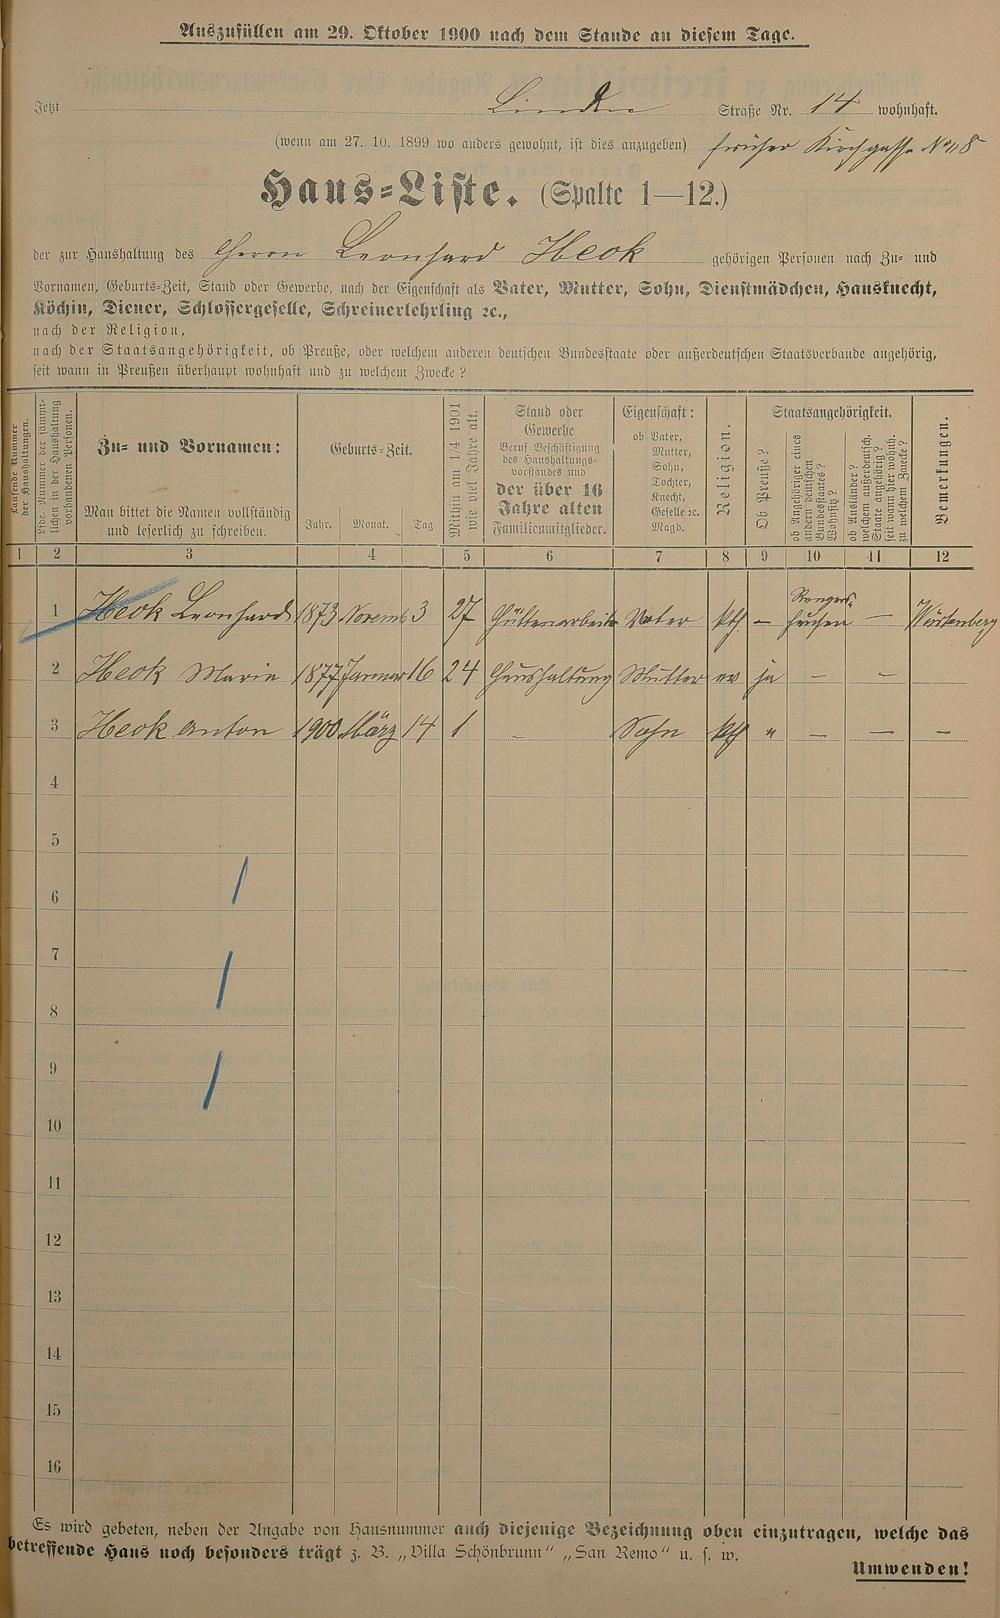 Auszufüllen am 29. Oktober 1900 nach dem Stande an diesem Tage.
Jetzt Linden Straße Nr. 14 wohnhaft.
(wenn am 27. 10. 1899 wo anders gewohnt, ist dies anzugeben) früher Kirchgasse No 8
Haus-Liste. (Spalte 1—12.)
der zur Haushaltung des Herrn Leonhard Heck gehörigen Personen nach Zu- und
Vornamen, Geburts-Zeit, Stand oder Gewerbe, nach der Eigenschaft als Vater, Mutter, Sohn, Dienstmädchen, Hausknecht,
Köchin, Diener, Schlossergeselle, Schreinerlehrling ꝛc.,
nach der Religion,
nach der Staatsangehörigkeit, ob Preuße, oder welchem anderen deutschen Bundesstaate oder außerdeutschen Staatsverbande angehörig,
seit wann in Preußen überhaupt wohnhaft und zu welchem Zwecke?
Laufende Nummer
der Haushaltungen.
Lfde. Nummer der sämmt-
lichen in der Haushaltung
vorhandenen Personen.
Zu- und Vornamen:
Man bittet die Namen vollständig
und leserlich zu schreiben.
Geburts-Zeit.
Jahr. Monat. Tag.
Mithin am 1/4 1901
wie viel Jahre alt.
Stand oder
Gewerbe
Beruf Beschäftigung
des Haushaltungs-
vorstandes und
der über 16
Jahre alten
Familienmitglieder.
Eigenschaft:
ob Vater,
Mutter,
Sohn,
Tochter,
Knecht,
Geselle ꝛc.
Magd.
Religion.
Staatsangehörigkeit.
Ob Preuße?
ob Angehöriger eines
andern deutschen
Bundesstaates?
Wohnsitz?
ob Ausländer?
welchem außerdeutsch.
Staate angehörig?
seit wann hier wohnh.
zu welchem Zwecke?
Bemerkungen.
1 2 3 4 5 6 7 8 9 10 11 12
1 Heck Leonhard 1873 Novemb 3 27 Hüttenarbeiter Vater kth — — Würtenberg
2 Heck Maria 1877 Januar 16 24 Haushaltung Mutter ev ja — —
3 Heck Anton 1900 März 14 1 — Sohn kth " — — —
4
5
6
7
8
9
10
11
12
13
14
15
16
Es wird gebeten, neben der Angabe von Hausnummer auch diejenige Bezeichnung oben einzutragen, welche das
betreffende Haus noch besonders trägt z. B. „Villa Schönbrunn" „San Remo" u. s. w.
Umwenden!